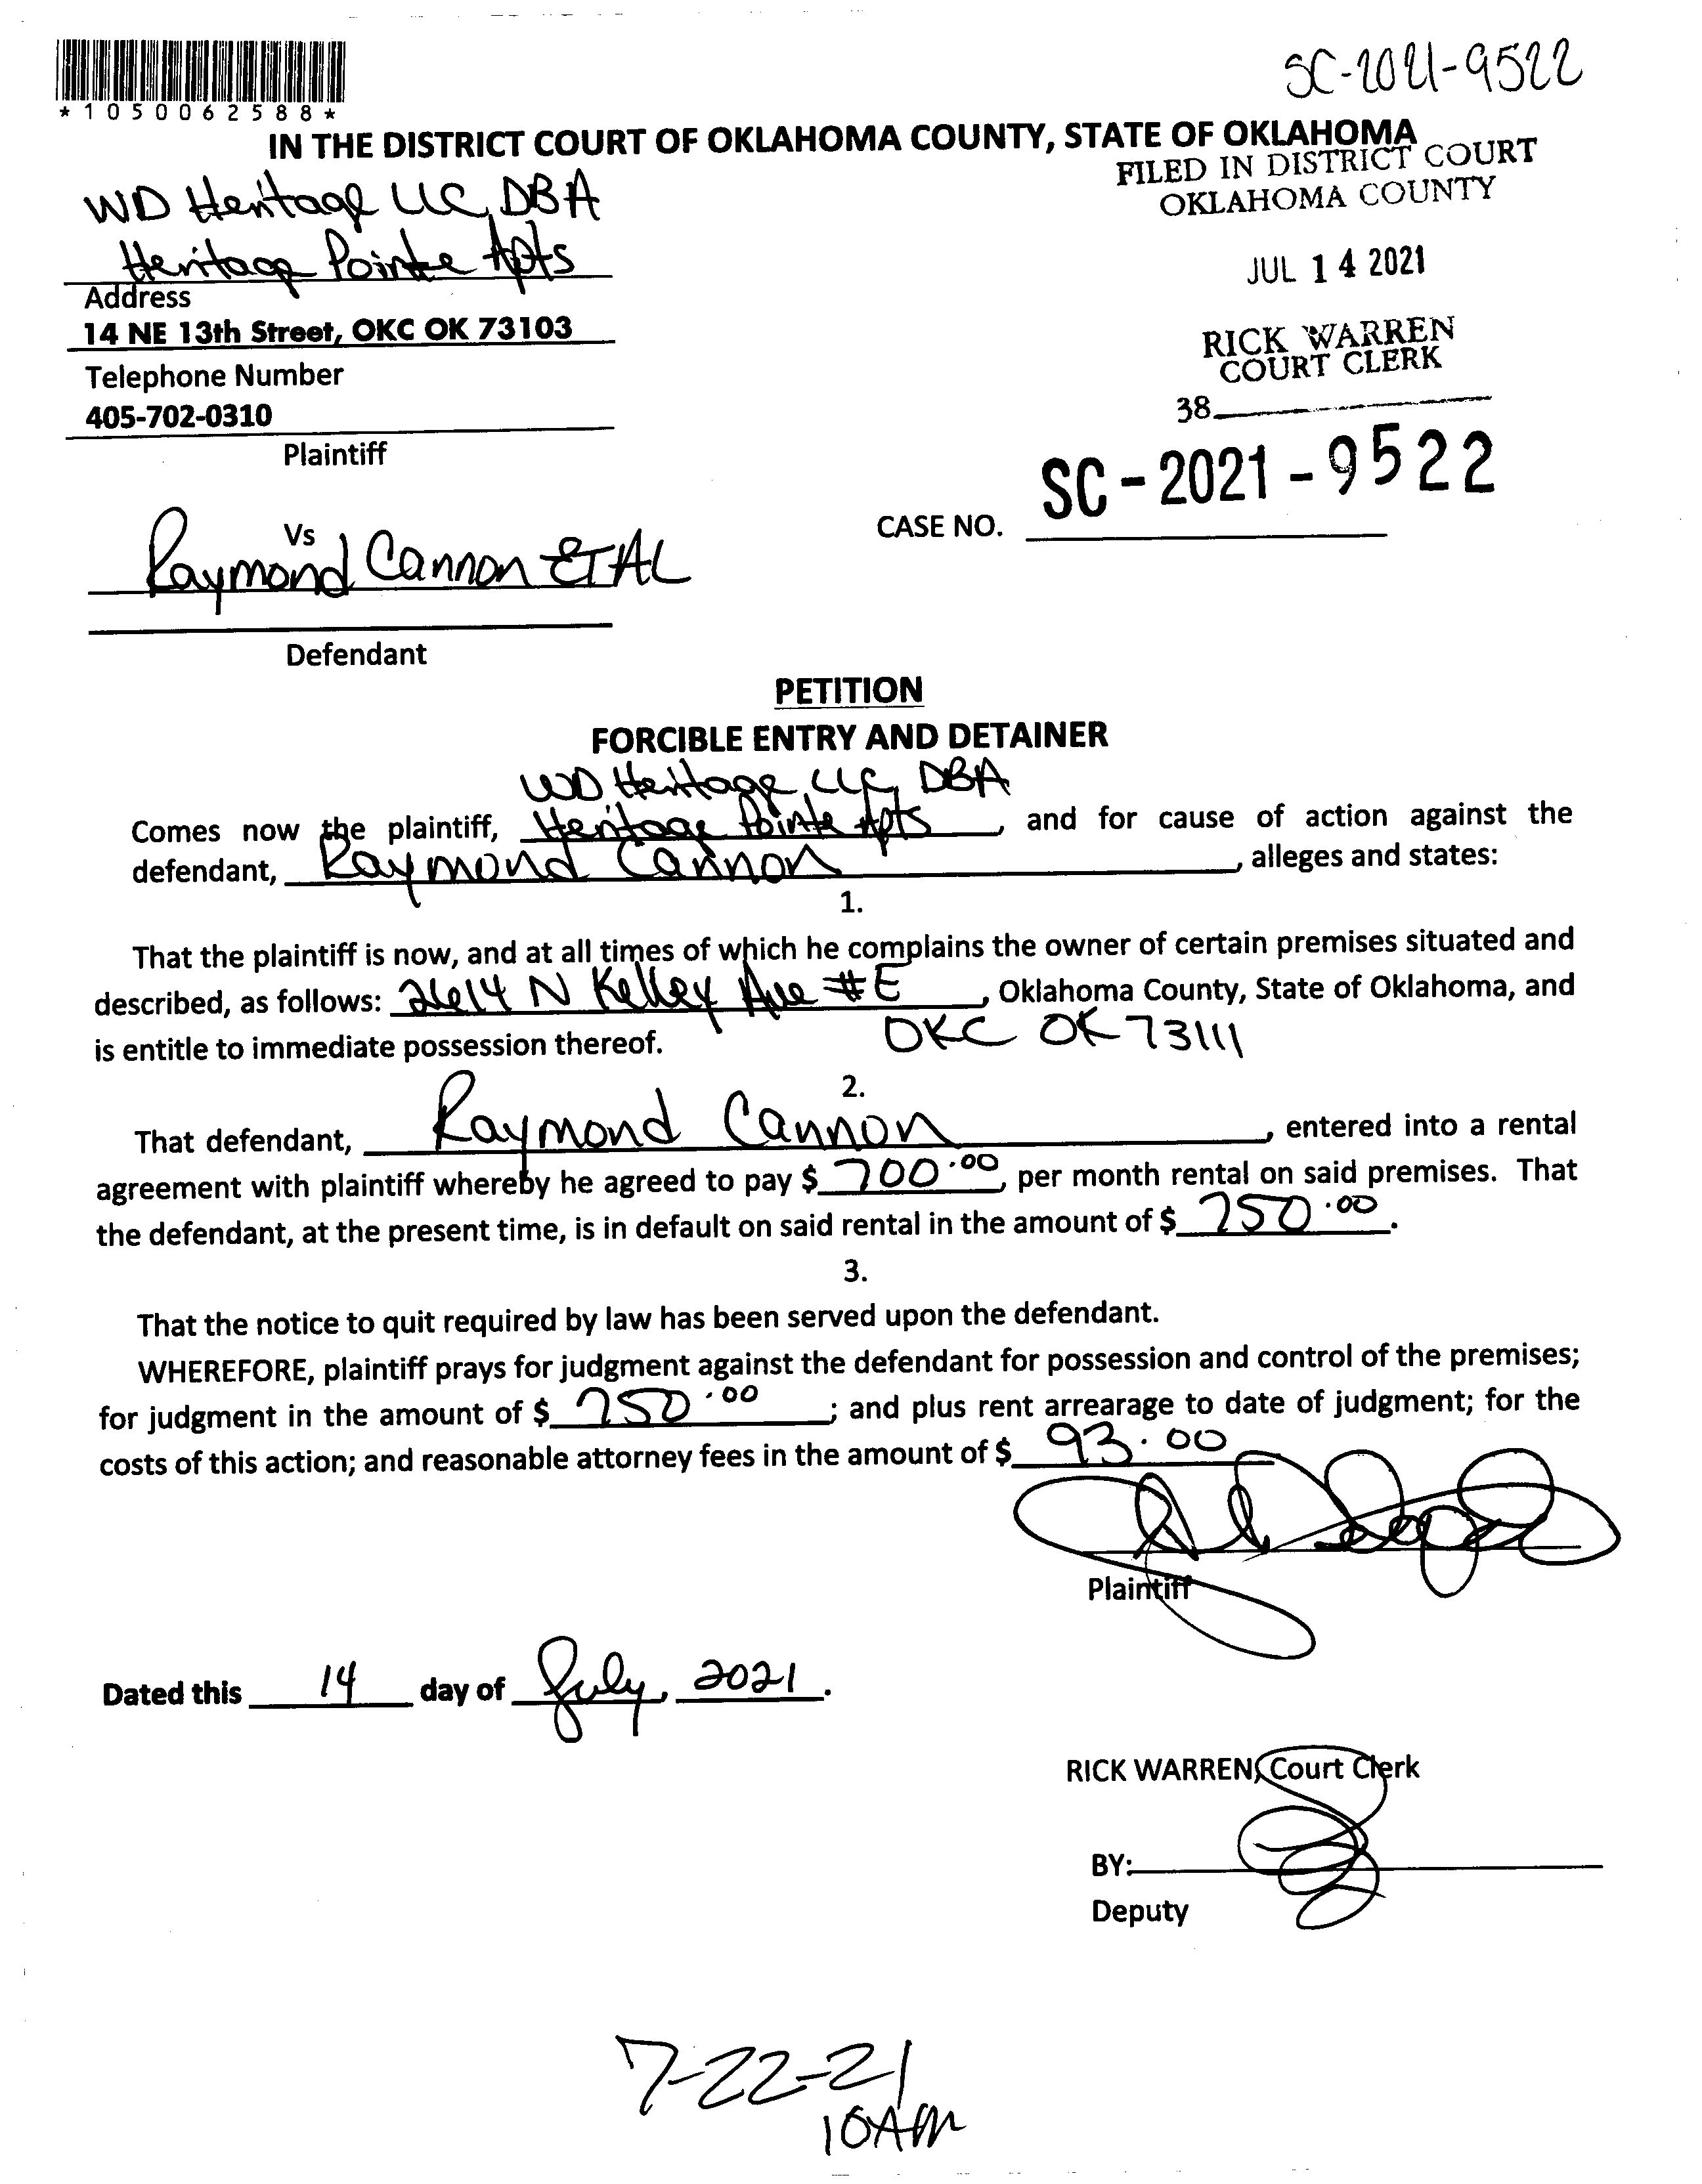 SC-2021-9522
*1050062588*
IN THE DISTRICT COURT OF OKLAHOMA COUNTY, STATE OF OKLAHOMA
FILED IN DISTRICT COURT
OKLAHOMA COUNTY
JUL 14 2021
RICK WARREN
COURT CLERK
38
WD Heritage LLC, DBA
Heritage Pointe Apts
Address
14 NE 13th Street, OKC OK 73103
Telephone Number
405-702-0310
Plaintiff
Vs
CASE NO. SC-2021-9522
Raymond Cannon ET AL
Defendant
PETITION
FORCIBLE ENTRY AND DETAINER
WD Heritage LLC, DBA
Comes now the plaintiff, Heritage Pointe Apts, and for cause of action against the
defendant, Raymond Cannon, alleges and states:
1.
That the plaintiff is now, and at all times of which he complains the owner of certain premises situated and
described, as follows: 2614 N Kelley Ave #E, Oklahoma County, State of Oklahoma, and
is entitle to immediate possession thereof. OKC OK 73111
2.
That defendant, Raymond Cannon, entered into a rental
agreement with plaintiff whereby he agreed to pay $ 700.00, per month rental on said premises. That
the defendant, at the present time, is in default on said rental in the amount of $ 750.00.
3.
That the notice to quit required by law has been served upon the defendant.
WHEREFORE, plaintiff prays for judgment against the defendant for possession and control of the premises;
for judgment in the amount of $ 750.00; and plus rent arrearage to date of judgment; for the
costs of this action; and reasonable attorney fees in the amount of $ 93.00
Plaintiff
Dated this 14 day of July, 2021.
RICK WARREN, Court Clerk
BY:
Deputy
7-22-21
10AM